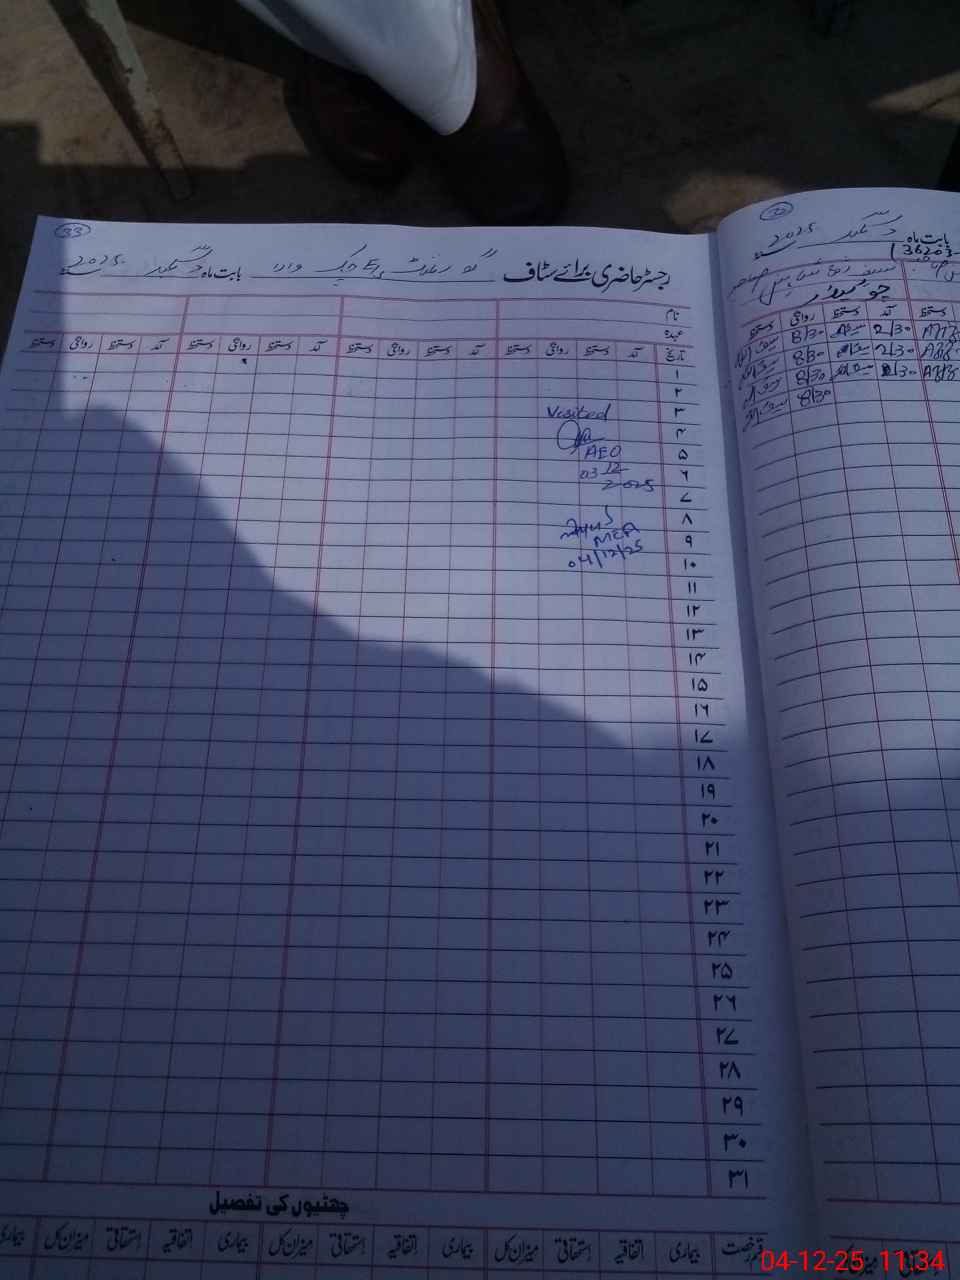 33
رجسٹر حاضری برائے سٹاف گورنمنٹ بابت ماہ دسمبر سنہ 2025
نام
عہدہ
تاریخ آمد دستخط روانگی دستخط آمد دستخط روانگی دستخط آمد دستخط روانگی دستخط آمد دستخط روانگی دستخط
۱
۲
۳
۴
۵
۶
۷
۸
۹
۱۰
۱۱
۱۲
۱۳
۱۴
۱۵
۱۶
۱۷
۱۸
۱۹
۲۰
۲۱
۲۲
۲۳
۲۴
۲۵
۲۶
۲۷
۲۸
۲۹
۳۰
۳۱
Visited
AEO
03 12
2025
MEA
04/12/25
چھٹیوں کی تفصیل
قسم رخصت بیماری اتفاقیہ استحقاقی میزان کل بیماری اتفاقیہ استحقاقی میزان کل بیماری اتفاقیہ استحقاقی میزان کل بیماری
32
بابت ماہ دسمبر سنہ 2025
36203-
چوکیدار
دستخط آمد دستخط روانگی دستخط
2/30 8/30
2/30 8/30
2/30 8/30
8/30
استحقاقی میزان کل
04-12-25 11:34